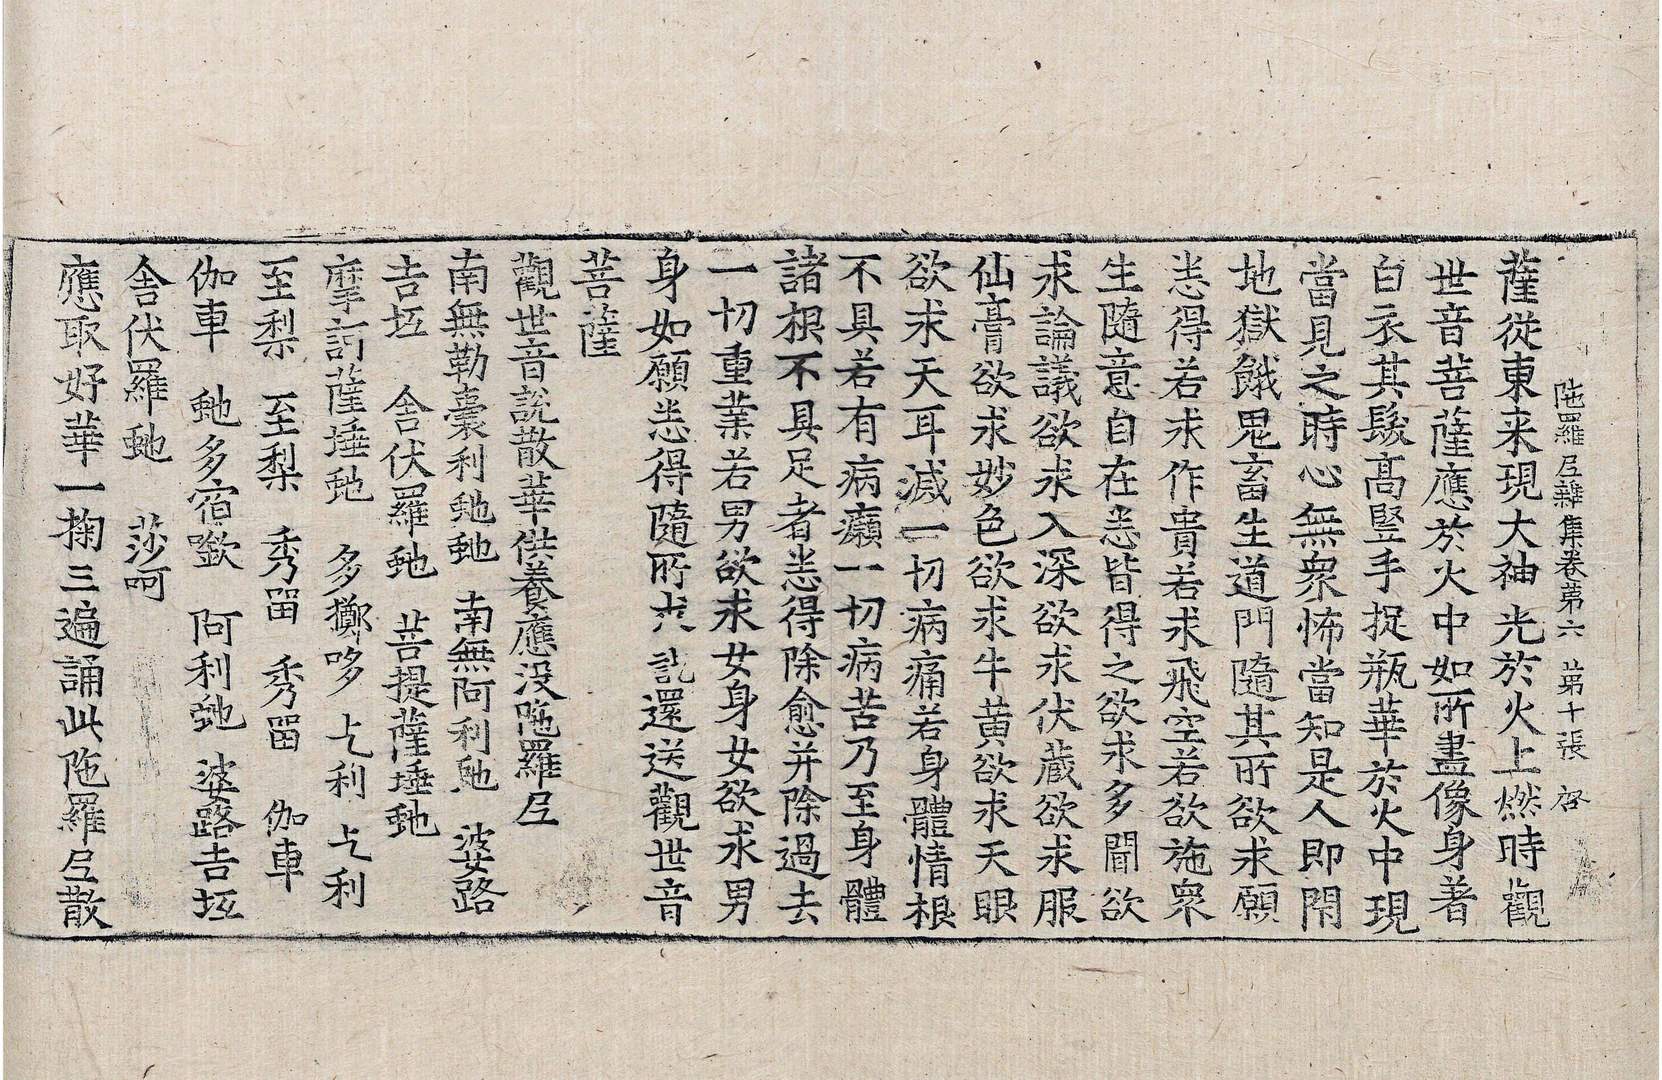 陁羅尼雜集卷第六 第十張 啓
薩從東来現大神光於火上燃時觀
世音菩薩應於火中如所畫像身著
白衣其髮高竪手捉瓶華於火中現
當見之時心無衆怖當知是人即閇
地獄餓鬼畜生道門隨其所欲求願
悉得若求作貴若求飛空若欲施衆
生隨意自在悉皆得之欲求多聞欲
求論議欲求入深欲求伏藏欲求服
仙膏欲求妙色欲求牛黄欲求天眼
欲求天耳滅一切病痛若身體情根
不具若有病癩一切病苦乃至身體
諸根不具足者悉得除愈并除過去
一切重業若男欲求女身女欲求男
身如願悉得隨所求訖還送觀世音
菩薩
觀世音說散華供養應没陁羅尼
南無勒囊利虵虵 南無阿利虵 婆路
吉坘 舍伏羅虵 菩提薩埵虵
摩訶薩埵虵 多擲哆 上利 上利
至梨 至梨 秀留 秀留 伽車
伽車 虵多宿㘓 阿利虵 婆路吉坘
舍伏羅虵 莎呵
應取好華一掬三遍誦此陁羅尼散